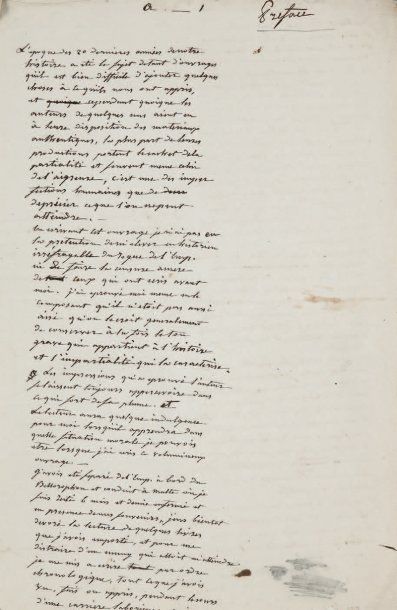 a - 1
Preface
L'epoque des 20 dernieres années de notre
histoire a eté le sujet de tant d'ouvrages
qu'il est bien difficile d'ajouter quelques
choses à ce qu'ils nous ont appris,
et quoique cependant quoique les
auteurs de quelques uns aient eu
à leurs disposition des materiaux
authentiques, la plus part de leurs
productions portent le cachet de la
partialité et souvent meme celui
de l'aigreur, c'est une des imper
fections humaines que de
deprécier ce que l'on ne peut
atteindre. -
En ecrivant cet ouvrage je n'ai pas eu
la pretention de m'elever en historien
irréfragable du regne de l'Emp.
ni de faire la censure amere
de ceux qui ont ecris avant
moi. j'ai eprouvé moi meme en le
composant qu'il n'etoit pas aussi
aisé qu'on le croit generalement
de conserver à la fois le ton
grave qui appartient à l'histoire
et l'impartialité qui la caracterise.
Les impressions qu'a eprouvé l'auteur
se laissent toujours appercevoir dans
ce qui sort de sa plume. et
Le lecteur aura quelque indulgence
pour moi lorsqu'il apprendra dans
quelle situation morale je pouvois
etre lorsque j'ai ecris ce volumineux
ouvrage. -
J'avois eté separé de l'Emp. à bord du
Bellerophon et conduit à Malte où je
fus resté 6 mois
en presence de mes souvenirs, j'eus bientot
devoré la lecture de quelques livres
que j'avois emporté, et pour me
distraire d'un ennuy qui alloit m'atteindre
je me mis a ecrire tout par ordre
chronologique, tout ce que j'avois
vu, fais ou appris, pendant le cours
d'une carriere laborieuse